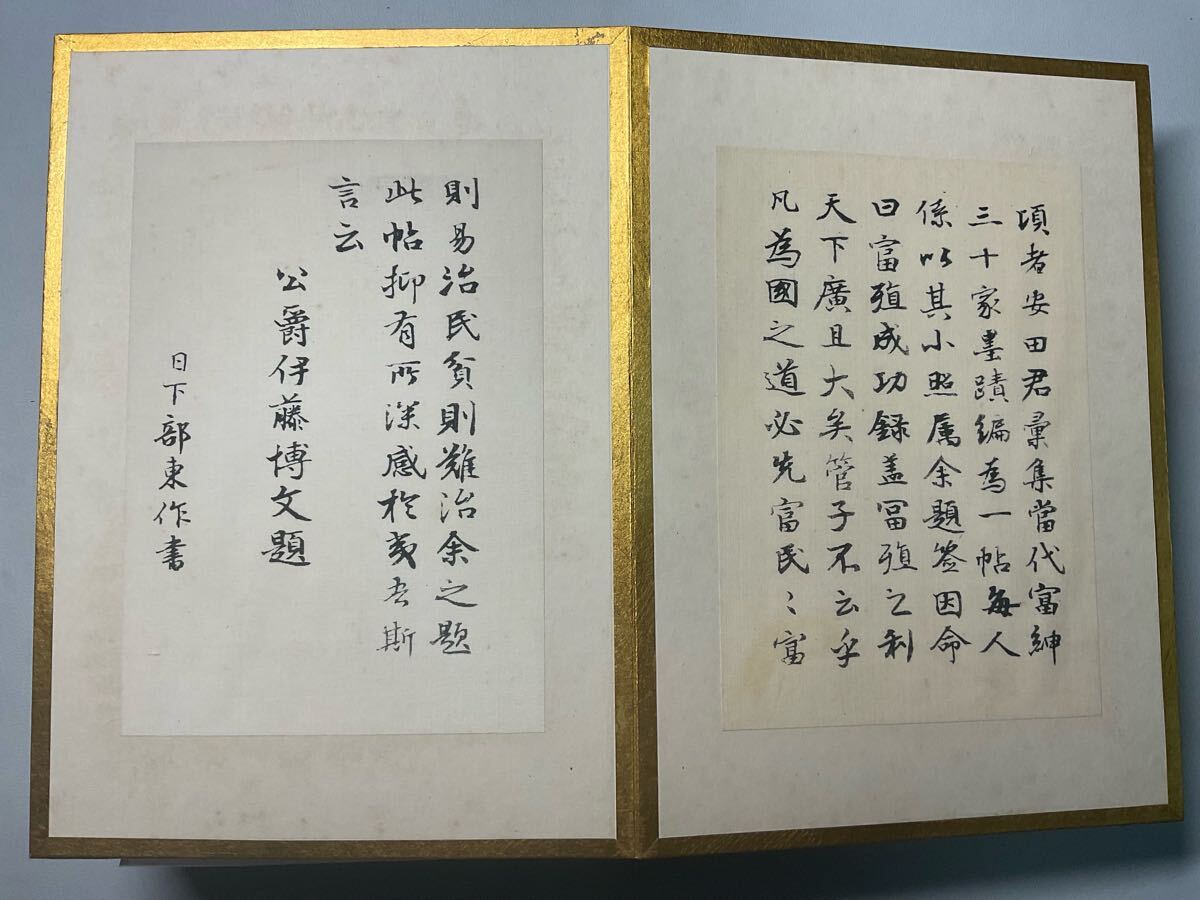 頃者安田君彙集當代富紳
三十家墨蹟編為一帖每人
係以其小照属余題签因命
曰富殖成功録盖冨殖之利
天下廣且大矣管子不云乎
凡為國之道必先富民〻富
則易治民貧則難治余之題
此帖抑有所深感於夷吾斯
言云
公爵伊藤博文題
日下部東作書